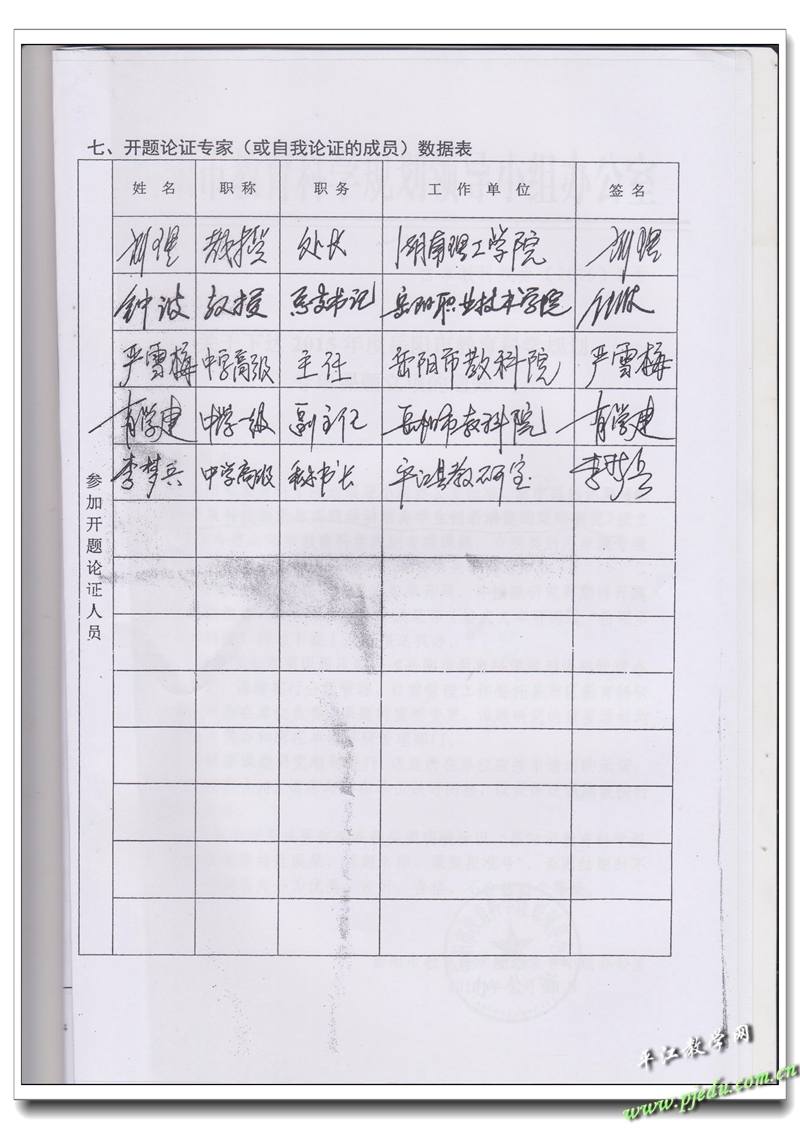 七、开题论证专家（或自我论证的成员）数据表
姓名 职称 职务 工作单位 签名
刘理 教授 处长 湖南理工学院 刘理
钟波 教授 系支书记 岳阳职业技术学院 钟波
严雪梅 中学高级 主任 岳阳市教科院 严雪梅
肖学建 中学一级 副主任 岳阳市教科院 肖学建
李梦兵 中学高级 秘书长 平江县教研室
参加开题论证人员
平江教学网
www.pjedu.com.cn